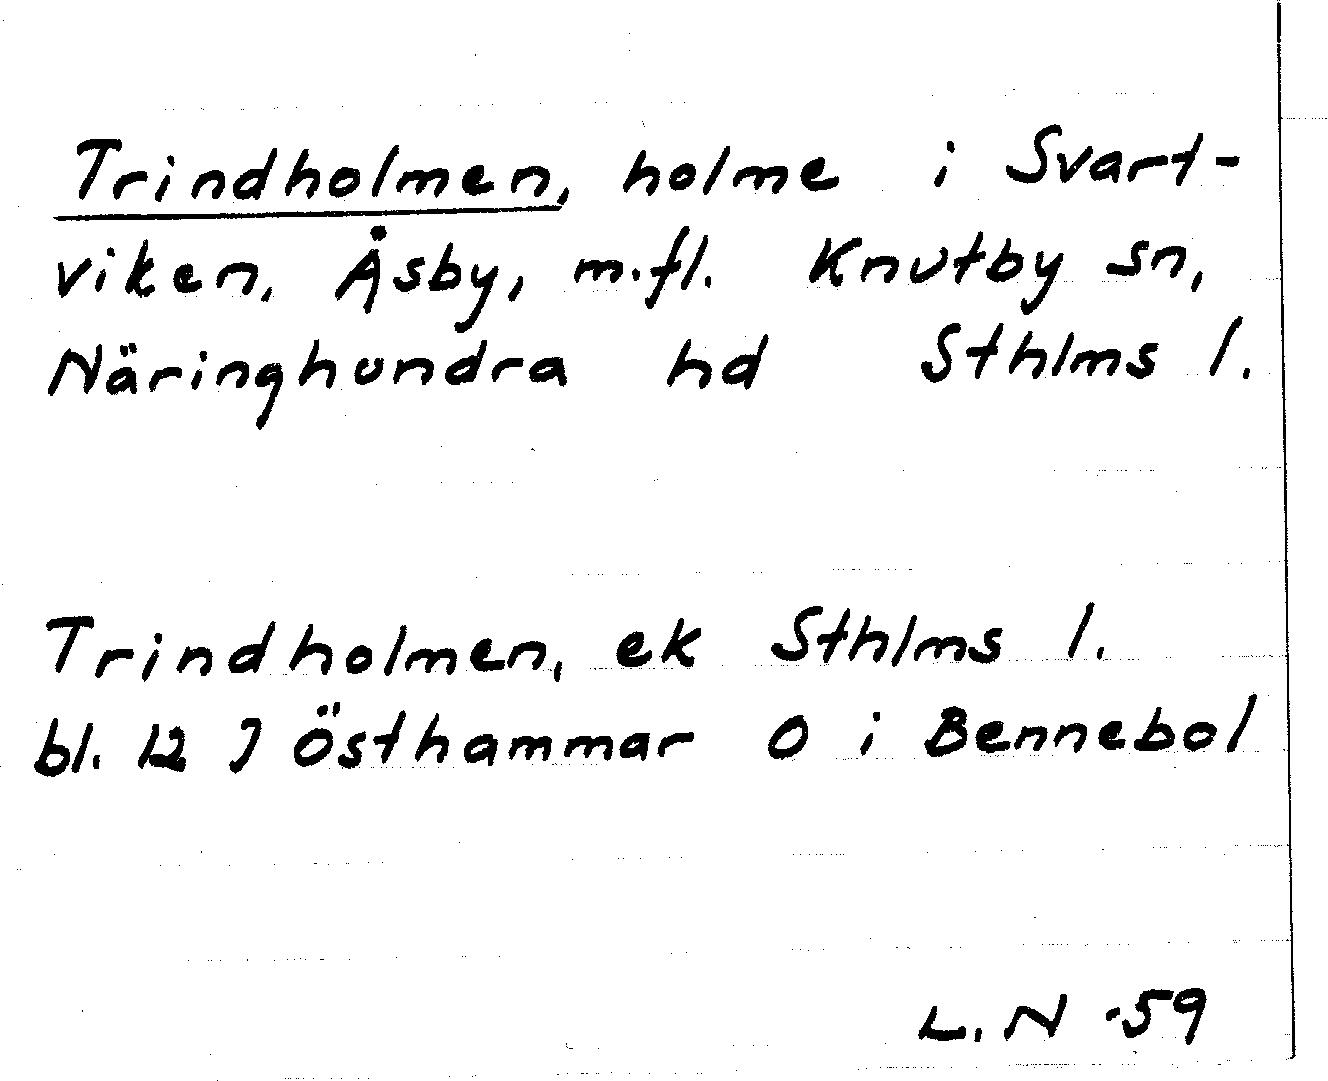 Trindholmen, holme i Svart-
viken, Åsby, m.fl. Knutby sn,
Näringhundra hd Sthlms l.
Trindholmen, ek Sthlms l.
bl. 12 J Östhammar O i Bennebol
L. N -59